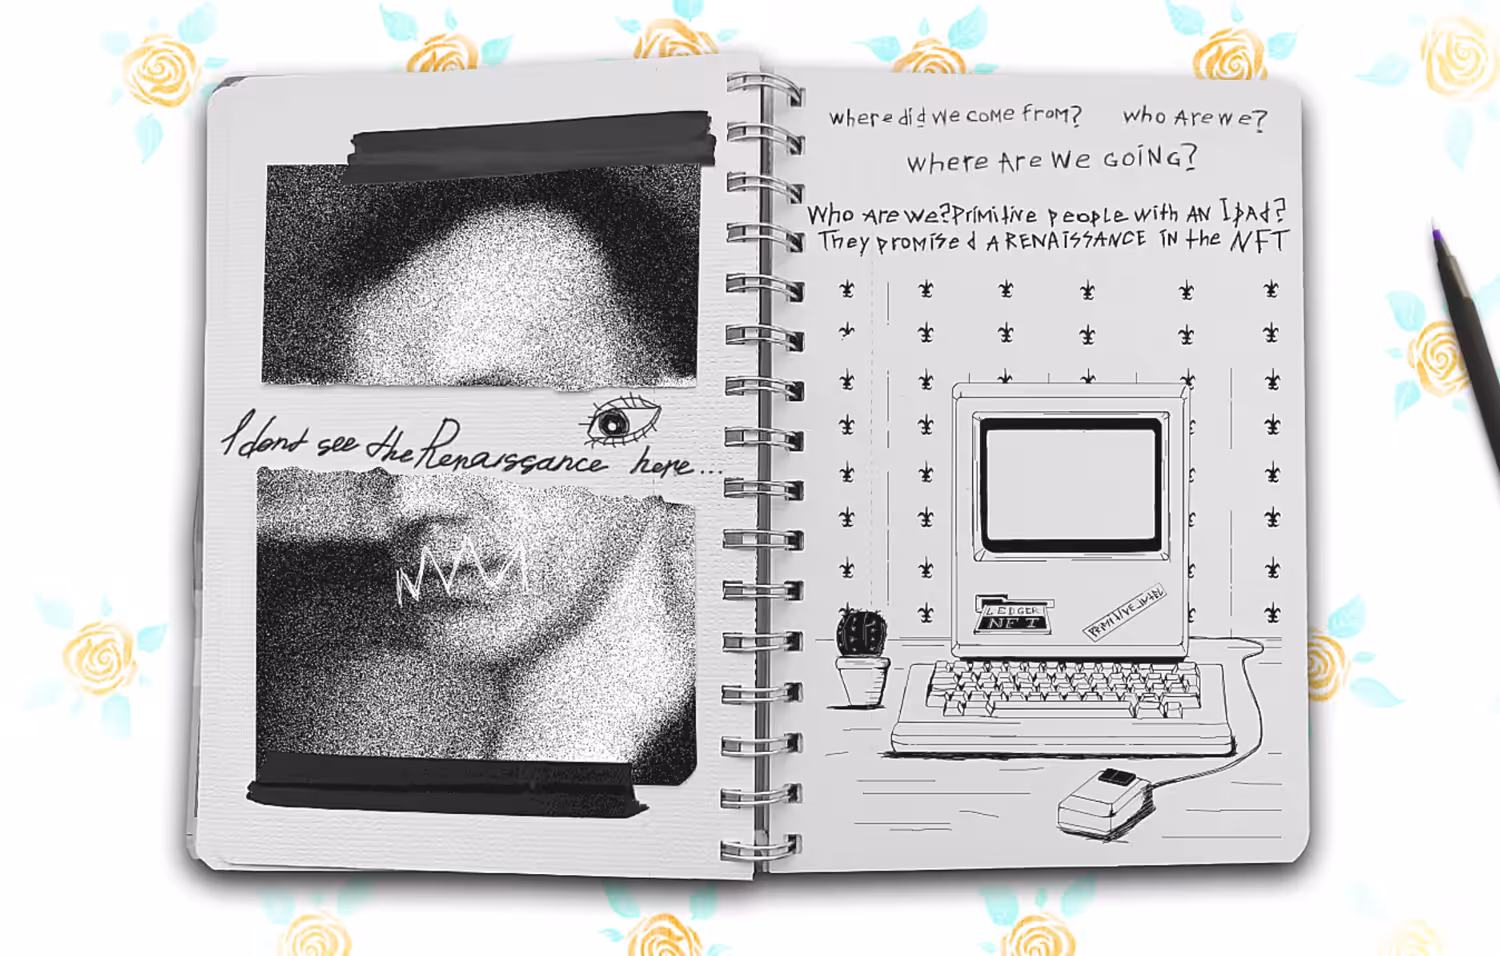 I dont see the Renaissance here...
where did we come from? who Are we?
where Are We GOiNG?
Who Are we? Primitive people with AN IpAd?
They promised A RENAISSANCE IN the NFT
LEDGER
NFT